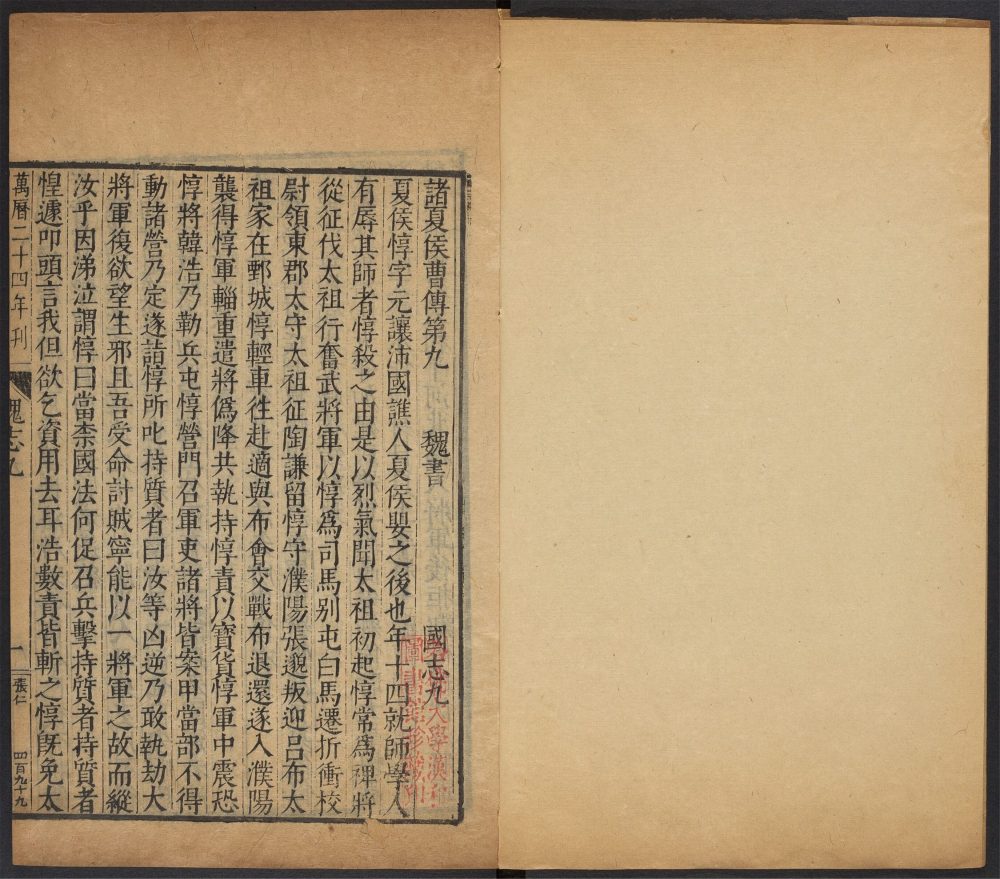 諸夏侯曹傳第九 魏書 國志九
夏侯惇字元讓沛國譙人夏侯嬰之後也年十四就師學人
有辱其師者惇殺之由是以烈氣聞太祖初起惇常爲裨將
從征伐太祖行奮武將軍以惇爲司馬别屯白馬遷折衝校
尉領東郡太守太祖征陶謙留惇守濮陽張邈叛迎吕布太
祖家在鄄城惇輕車徃赴適與布會交戰布退還遂入濮陽
襲得惇軍輜重遣將僞降共執持惇責以寶貨惇軍中震恐
惇將韓浩乃勒兵屯惇營門召軍吏諸將皆案甲當部不得
動諸營乃定遂詣惇所叱持質者曰汝等凶逆乃敢執劫大
將軍復欲望生邪且吾受命討賊寧能以一將軍之故而縱
汝乎因涕泣謂惇曰當柰國法何促召兵擊持質者持質者
惶遽叩頭言我但欲乞資用去耳浩數責皆斬之惇旣免太
萬曆二十四年刊 魏志九 一 張仁 四百九十九
大學漢和
圖書